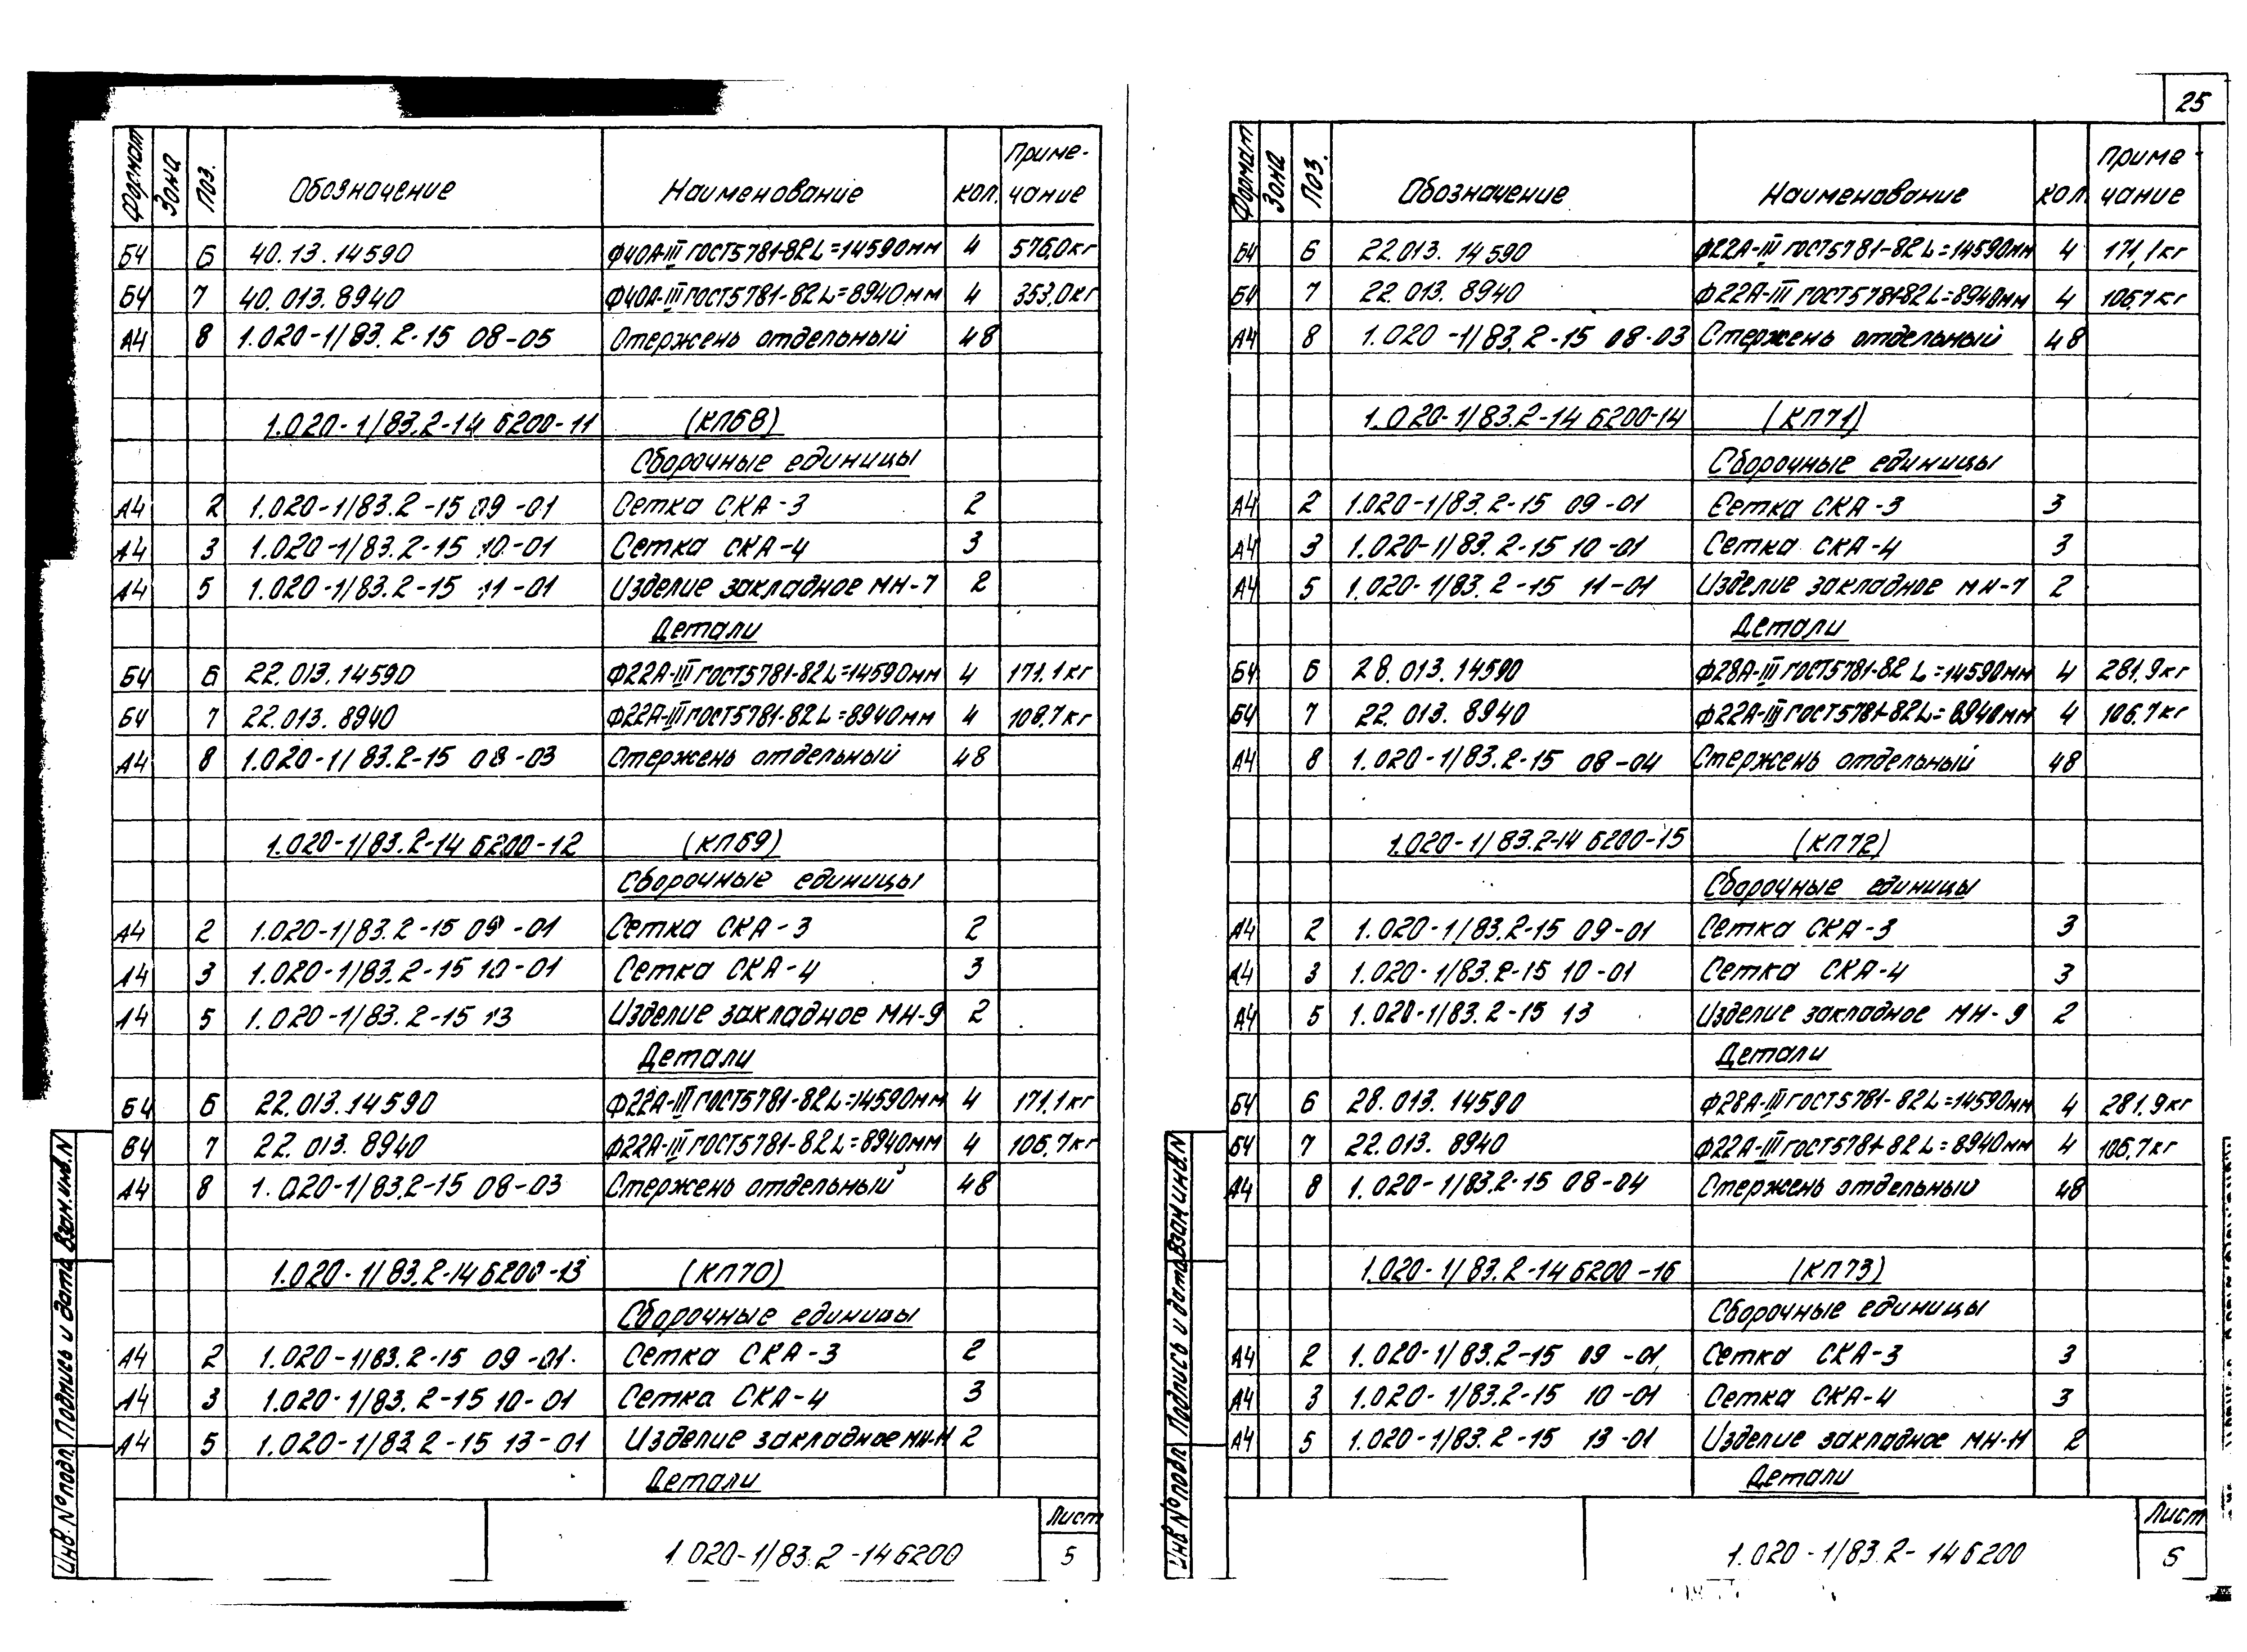 Формат Зона Поз. Обозначение Наименование кол. Приме-
чание
БЧ 6 40.13.14590 Ф40А-III ГОСТ5781-82 L=14590мм 4 576,0кг
БЧ 7 40.013.8940 Ф40А-III ГОСТ5781-82 L=8940мм 4 353,0кг
А4 8 1.020-1/83.2-15 08-05 Стержень отдельный 48
1.020-1/83.2-14 6200-11 (КП68)
Сборочные единицы
А4 2 1.020-1/83.2-15 09-01 Сетка СКА-3 2
А4 3 1.020-1/83.2-15 10-01 Сетка СКА-4 3
А4 5 1.020-1/83.2-15 11-01 Изделие закладное МН-7 2
Детали
БЧ 6 22.013.14590 Ф22А-III ГОСТ5781-82 L=14590мм 4 171.1кг
БЧ 7 22.013.8940 Ф22А-III ГОСТ5781-82 L=8940мм 4 106.7кг
А4 8 1.020-1/83.2-15 08-03 Стержень отдельный 48
1.020-1/83.2-14 6200-12 (КП69)
Сборочные единицы
А4 2 1.020-1/83.2-15 09-01 Сетка СКА-3 2
А4 3 1.020-1/83.2-15 10-01 Сетка СКА-4 3
А4 5 1.020-1/83.2-15 13 Изделие закладное МН-9 2
Детали
БЧ 6 22.013.14590 Ф22А-III ГОСТ5781-82 L=14590мм 4 171.1кг
БЧ 7 22.013.8940 Ф22А-III ГОСТ5781-82 L=8940мм 4 106,7кг
А4 8 1.020-1/83.2-15 08-03 Стержень отдельный 48
1.020-1/83.2-14 6200-13 (КП70)
Сборочные единицы
А4 2 1.020-1/83.2-15 09-01 Сетка СКА-3 2
А4 3 1.020-1/83.2-15 10-01 Сетка СКА-4 3
А4 5 1.020-1/83.2-15 13-01 Изделие закладное МН-11 2
Детали
Инв. № подл. Подпись и дата Взам.инв.N
1.020-1/83.2-14 6200
Лист
5
25
Формат Зона Поз. Обозначение Наименование кол. Приме-
чание
БЧ 6 22.013.14590 Ф22А-III ГОСТ5781-82 L=14590мм 4 171,1кг
БЧ 7 22.013.8940 Ф22А-III ГОСТ5781-82 L=8940мм 4 106,7кг
А4 8 1.020-1/83.2-15 08-03 Стержень отдельный 48
1.020-1/83.2-14 6200-14 (КП71)
Сборочные единицы
А4 2 1.020-1/83.2-15 09-01 Сетка СКА-3 3
А4 3 1.020-1/83.2-15 10-01 Сетка СКА-4 3
А4 5 1.020-1/83.2-15 11-01 Изделие закладное МН-7 2
Детали
БЧ 6 28.013.14590 Ф28А-III ГОСТ5781-82 L=14590мм 4 281,9кг
БЧ 7 22.013.8940 Ф22А-III ГОСТ5781-82 L=8940мм 4 106.7кг
А4 8 1.020-1/83.2-15 08-04 Стержень отдельный 48
1.020-1/83.2-14 6200-15 (КП72)
Сборочные единицы
А4 2 1.020-1/83.2-15 09-01 Сетка СКА-3 3
А4 3 1.020-1/83.2-15 10-01 Сетка СКА-4 3
А4 5 1.020-1/83.2-15 13 Изделие закладное МН-9 2
Детали
БЧ 6 28.013.14590 Ф28А-III ГОСТ5781-82 L=14590мм 4 281.9кг
БЧ 7 22.013.8940 Ф22А-III ГОСТ5781-82 L=8940мм 4 106,7кг
А4 8 1.020-1/83.2-15 08-04 Стержень отдельный 48
1.020-1/83.2-14 6200-16 (КП73)
Сборочные единицы
А4 2 1.020-1/83.2-15 09-01 Сетка СКА-3 3
А4 3 1.020-1/83.2-15 10-01 Сетка СКА-4 3
А4 5 1.020-1/83.2-15 13-01 Изделие закладное МН-11 2
Детали
Инв № подл. Подпись и дата Взам.инв.N
1.020-1/83.2-14 6200
Лист
5